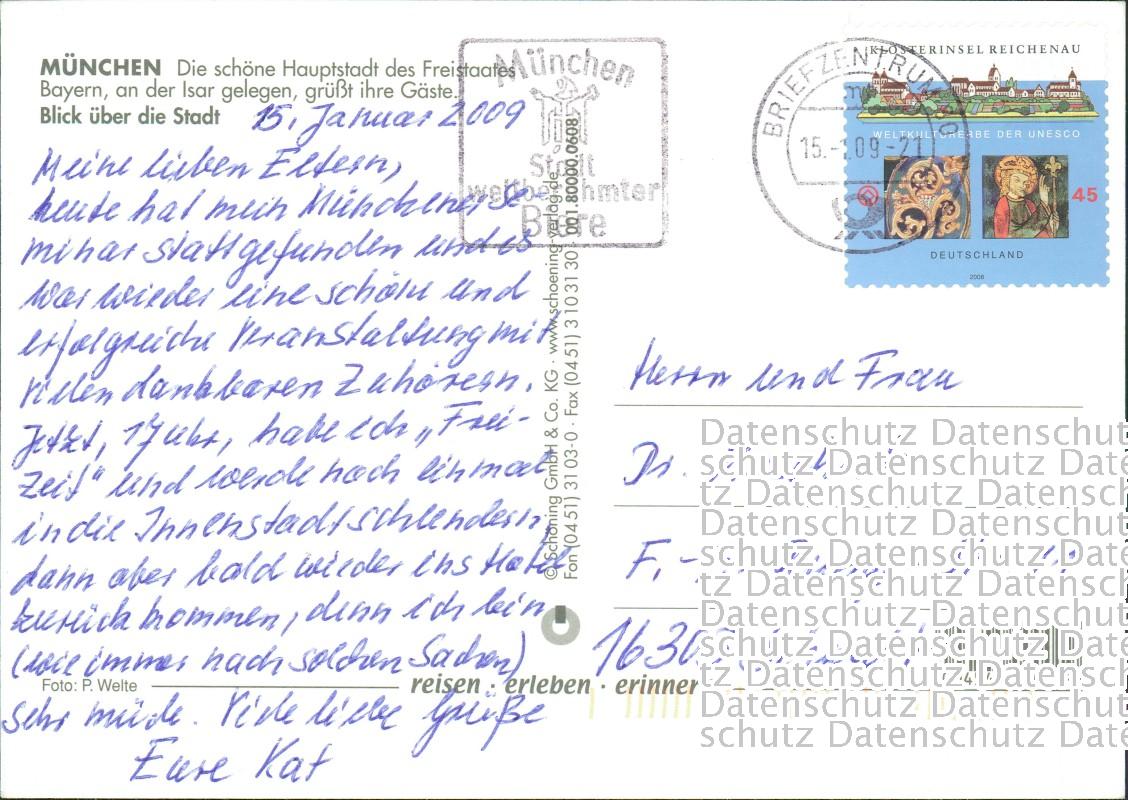 MÜNCHEN Die schöne Hauptstadt des Freistaates
Bayern, an der Isar gelegen, grüßt ihre Gäste.
Blick über die Stadt
15. Januar 2009
Meine lieben Eltern,
heute hat mein Münchener Se-
minar stattgefunden und es
war wieder eine schöne und
erfolgreiche Veranstaltung mit
vielen dankbaren Zuhörern.
Jetzt, 17 Uhr, habe ich „Frei-
zeit" und werde noch einmal
in die Innenstadt schlendern,
dann aber bald wieder ins Hotel
zurückkommen, denn ich bin
(wie immer nach solchen Sachen)
sehr müde. Viele liebe Grüße
Eure Kat
Foto: P. Welte
reisen · erleben · erinner
© Schöning GmbH & Co. KG · www.schoening-verlag.de
Fon (04 51) 3 10 3-0 · Fax (04 51) 3 10 31 30 · 001 80000 0608
München
Stadt
weltberühmter
Biere
BRIEFZENTRUM
15.-1.09-21
KLOSTERINSEL REICHENAU
WELTKULTURERBE DER UNESCO
45
DEUTSCHLAND
2008
Herrn und Frau
Dr.
F.-
1630
Datenschutz Datenschut
schutz Datenschutz Date
tz Datenschutz Datensch
Datenschutz Datenschut
schutz Datenschutz Date
tz Datenschutz Datensch
Datenschutz Datenschut
schutz Datenschutz Date
tz Datenschutz Datensch
Datenschutz Datenschut
schutz Datenschutz Date